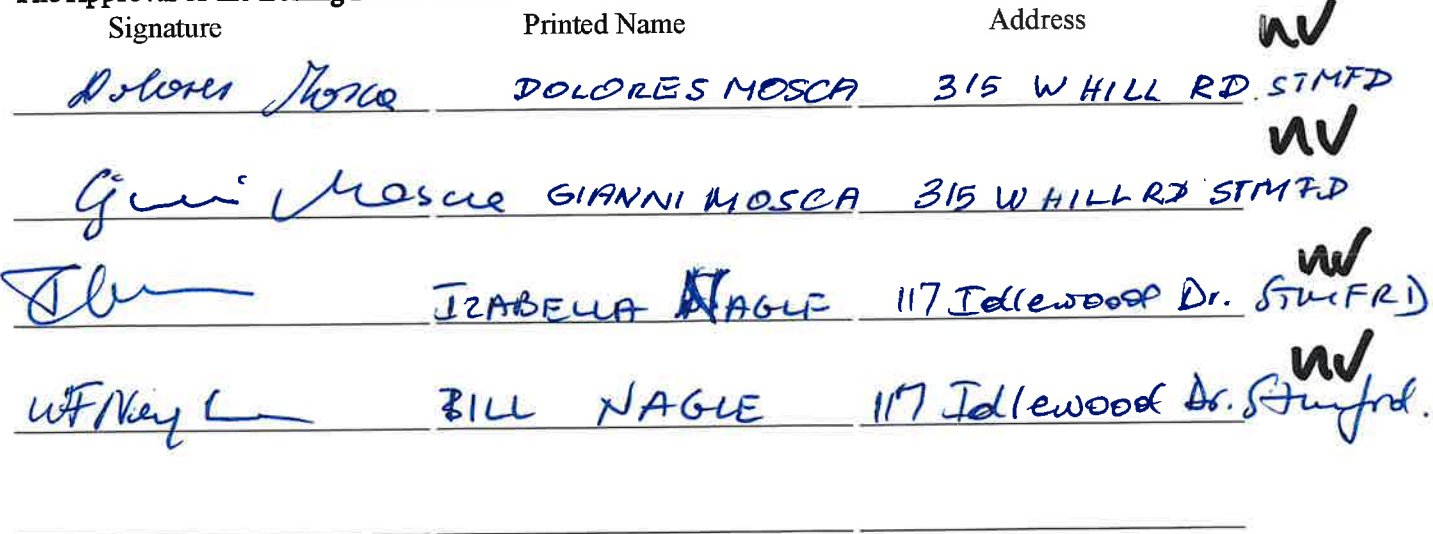 Signature Printed Name Address
nv
Dolores Mosca DOLORES MOSCA 315 W HILL RD. STMFD
nv
Gianni Mosca GIANNI MOSCA 315 W HILL RD STMFD
nv
IZABELLA NAGLE 117 Idlewood Dr. STMFRD
nv
BILL NAGLE 117 Idlewood Dr. Stmford.